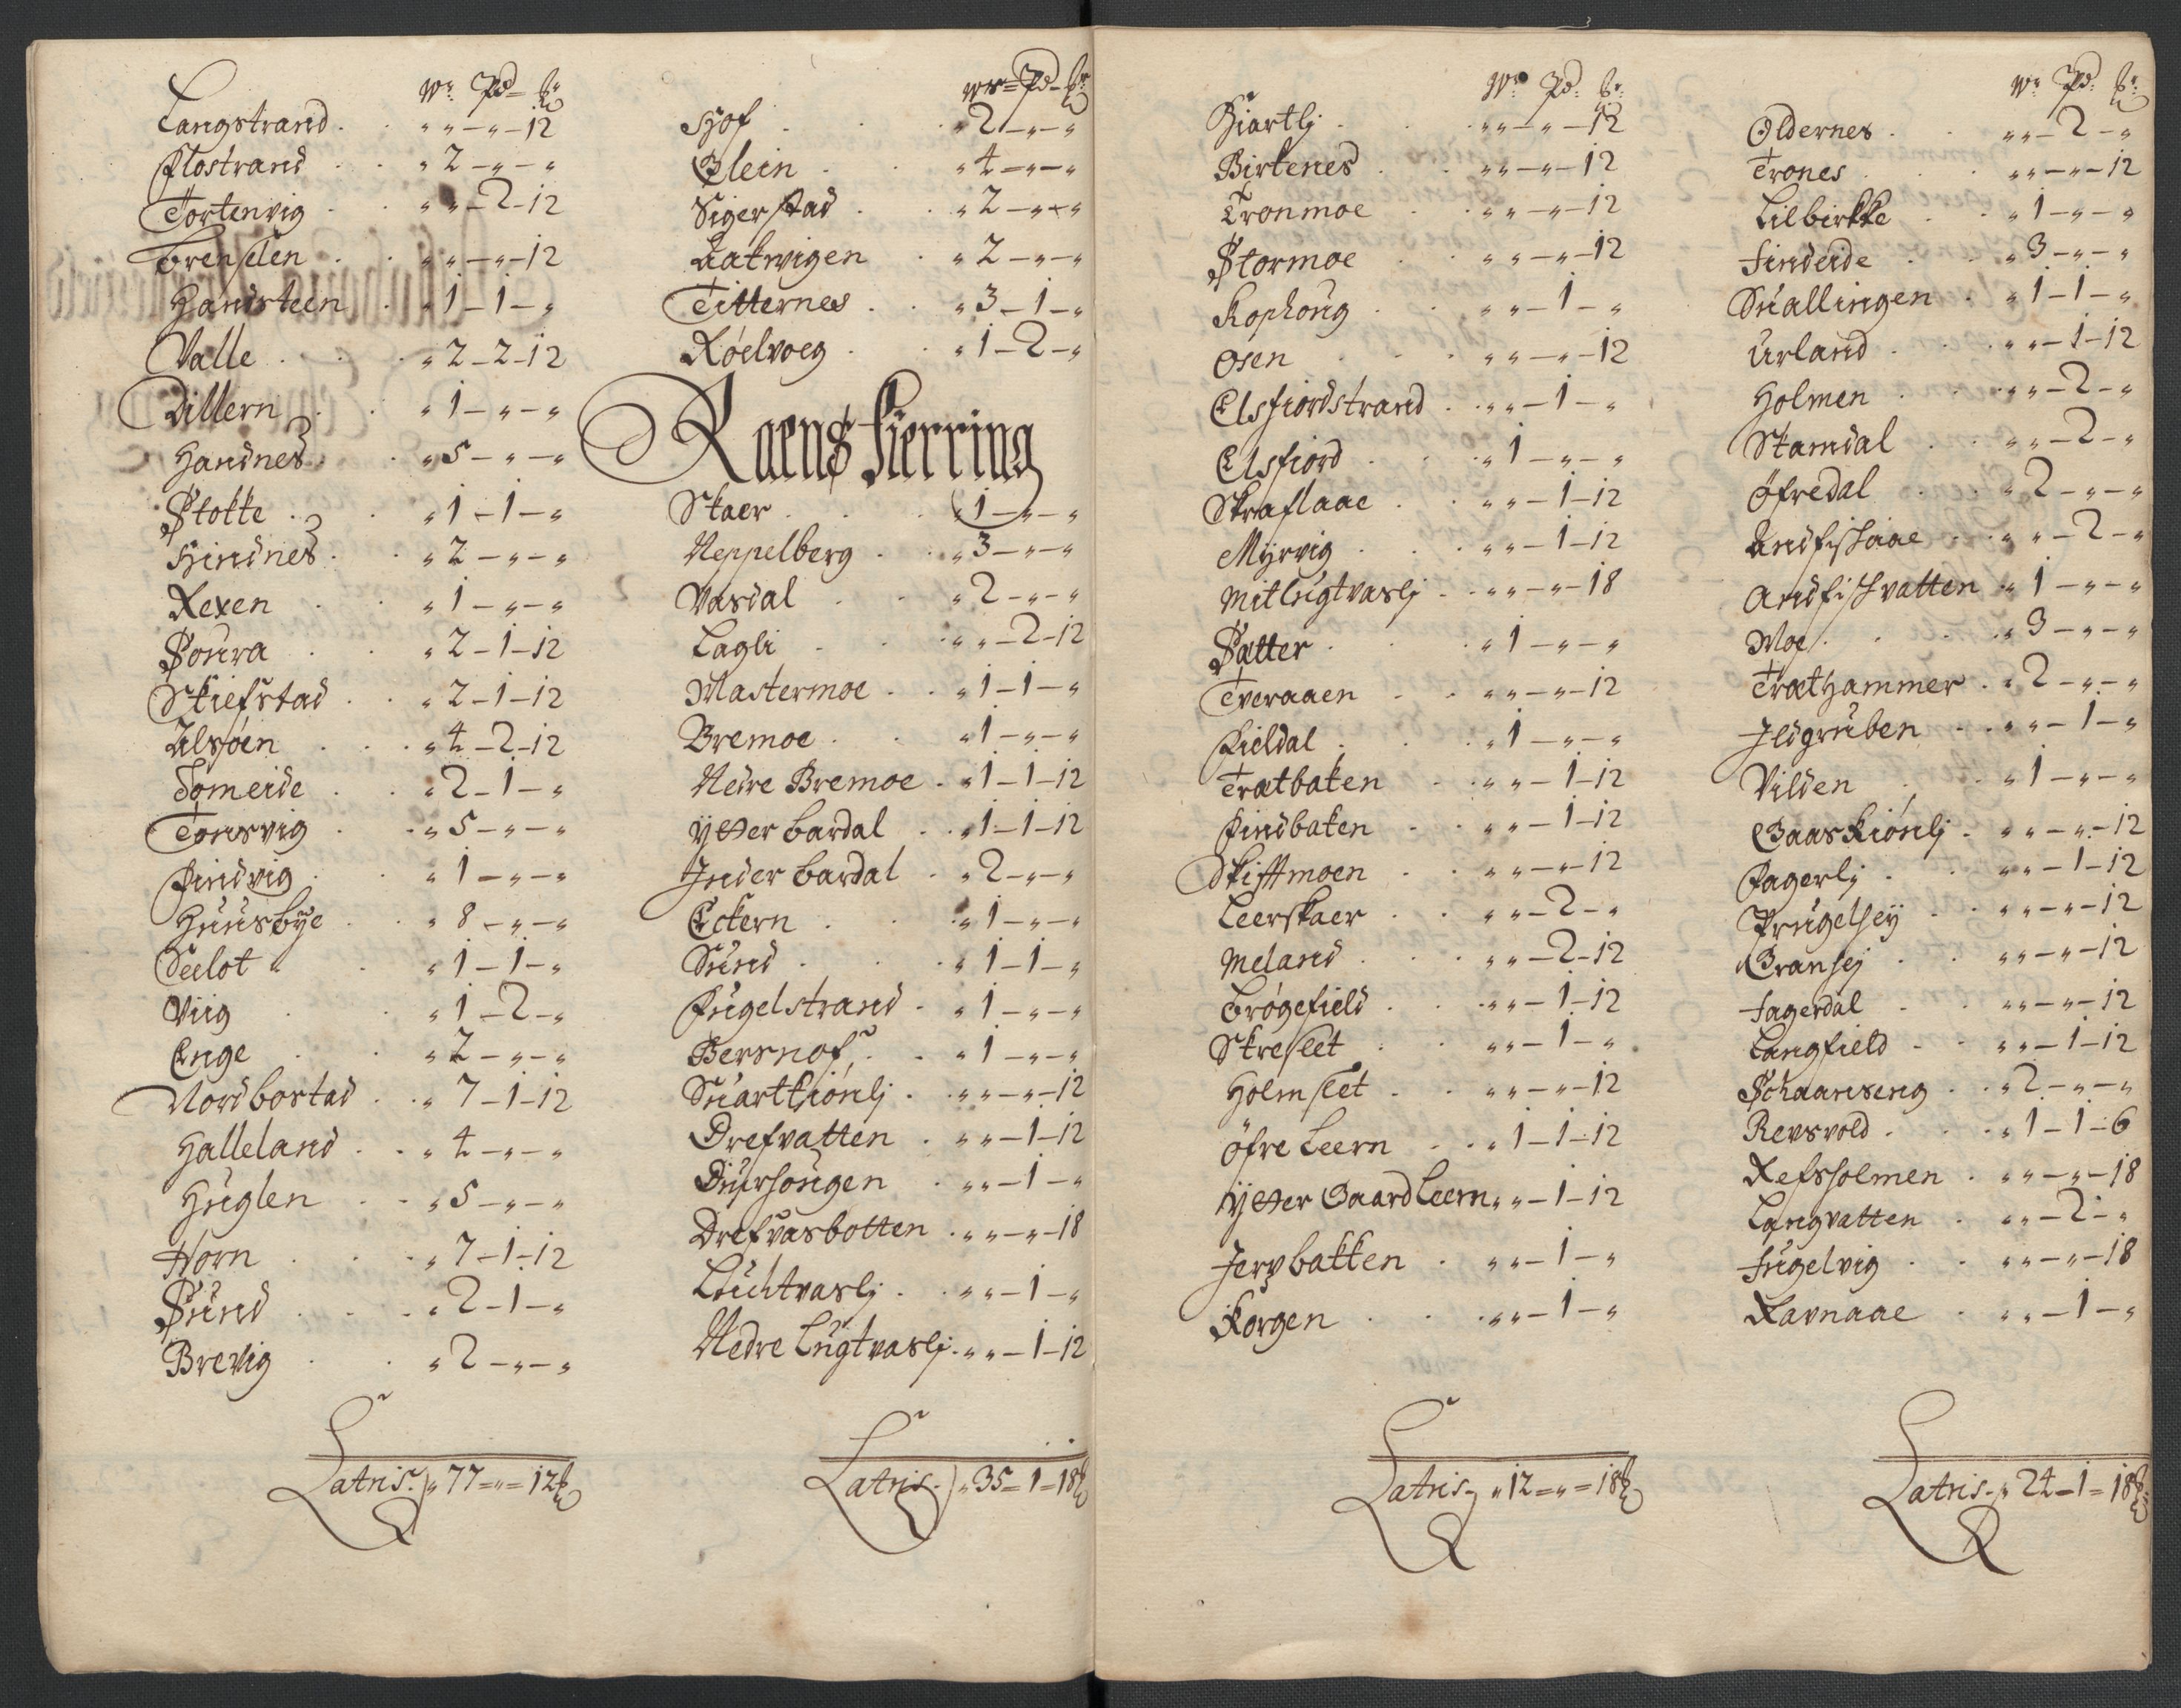 Wr: Pd= lb:
Langstrand . „ „ – „ – 12
Flostrand . . „ 2 – „ – „
Tortenvig . . „ „ – 2 – 12
Brenslen . . „ „ – „ – 12
Handsteen . „ 1 – 1 – „
Valle . . . „ 2 – 2 – 12
Dillern . . „ 1 – „ – „
Handnes . . „ 5 – „ – „
Stokke . . „ 1 – 1 – „
Hindnes . . „ 2 – „ – „
Rexen . . „ 1 – „ – „
Soura . . „ 2 – 1 – 12
Skiefstad . . „ 2 – 1 – 12
Ulsøen . . „ 4 – 2 – 12
Tomeide . . „ 2 – 1 – „
Tonsvig . . „ 5 – „ – „
Findvig . . „ 1 – „ – „
Huusbye . . „ 8 – „ – „
Seelot . . „ 1 – 1 – „
Viig . . „ 1 – 2 – „
Enge . . „ 2 – „ – „
Nordbostad . . „ 7 – 1 – 12
Halleland . . „ 4 – „ – „
Huglen . . „ 5 – „ – „
Horn . . „ 7 – 1 – 12
Sund . . „ 2 – 1 – „
Brevig . . „ 2 – „ – „
Latris. „ 77 = „ = 12 lb
Wr = Pd – lb:
Hof . . „ 2 – „ – „
Glein . . „ 4 = „ – „
Sigerstad . . „ 2 – „ – „
Aakvigen . „ 2 – „ – „
Titternes . . „ 3 – 1 – „
Røelvoeg . . „ 1 – 2 – „
Raens fierring
Skaer . . „ 1 – „ – „
Neppelberg . . „ 3 – „ – „
Vasdal . . „ 2 – „ – „
Lagli . . „ „ – 2 – 12
Mastermoe . . „ 1 – 1 – „
Bremoe . . „ 1 – „ – „
Nedre Bremoe . „ 1 – 1 – 12
Ytter bardal . . „ 1 – 1 – 12
Inder bardal . „ 2 – „ – „
Eckern . . „ 1 – „ – „
Sund . . „ 1 – 1 – „
Fugelstrand . „ 1 – „ – „
Bersnof . . „ 1 – „ – „
Suartkiónlj . „ „ – „ – 12
Drefvatten . „ „ – 1 – 12
Diurhougen . „ „ – 1 – „
Drefvasbotten . „ „ – „ – 18
Luchtvaslj . „ „ – 1 – „
Nedre Lugtvaslj . „ „ – 1 – 12
Latris. „ 35 = 1 = 18 lb
Wr: Pd: lb:
Hiartlj . . „ „ – „ – 12
Birkenes . „ „ – „ – 12
Tronmoe . „ „ – „ – 12
Stormoe . „ „ – „ – 12
Kophoug . . „ „ – 1 – „
Osen . . „ „ – „ – 12
Elsfiordstrand . „ „ – 1 – „
Elsfiord . . „ 1 – „ – „
Skraflaae . . „ „ – 1 – 12
Myrvig . . „ „ – 1 – 12
Mitlugtvaslj . „ „ – „ – 18
Sætter . . „ 1 – „ – „
Tveraaen . . „ „ – „ – 12
Fieldal . . „ 1 – „ – „
Trætbaken . „ „ – 1 – 12
Findbaken . . „ „ – 1 – 12
Skiftmoen . . „ „ – „ – 12
Leerskaer . . „ „ – 2 – „
Meland . . „ „ – 2 – 12
Brøgefield . . „ „ – 1 – 12
Skresleet . „ „ – 1 – „
Holmsleet . . „ „ – „ – 12
Øfre Leern . . „ 1 – 1 – 12
Ytter Gaard Leern „ „ – 1 – 12
Jervbakken . „ „ – 1 – „
Korgen . . „ „ – 1 – „
Latris. „ 12 = „ = 18 lb
Wr: Pd: lb:
Oldernes . . „ „ – 2 – „
Trones . . „ „ – „ – 12
Lilbirkke . „ 1 – „ – „
Findeide . . „ 3 – „ – „
Suallingen . „ 1 – 1 – „
Urland . . „ „ – 1 – 12
Holmen . . „ „ – 2 – „
Stamdal . . „ „ – 2 – „
Øfredal . . „ 2 – „ – „
Andfiskaae . „ „ – 2 – „
Andfiskvatten „ 1 – „ – „
Moe . . . „ 3 – „ – „
Træthammer . „ 2 – „ – „
Ildgruben . . „ „ – 1 – „
Vilden . . „ 1 – „ – „
Gaaskiónlj . „ „ – „ – 12
Fagerlj . . „ „ – 1 – 12
Prugelhey . . „ „ – „ – 12
Granhej . . „ „ – „ – 12
Fagerdal . . „ „ – „ – 12
Langfield . . „ „ – 1 – 12
Schaanseng . . „ 2 – „ – „
Revsvold . . „ 1 – 1 – 6
Refsholmen . „ „ – „ – 18
Langvatten . „ „ – 2 – „
Fugelvig . . „ „ – „ – 18
Ravnaae . „ „ – 1 – „
Latris. „ 24 – 1 = 18 lb